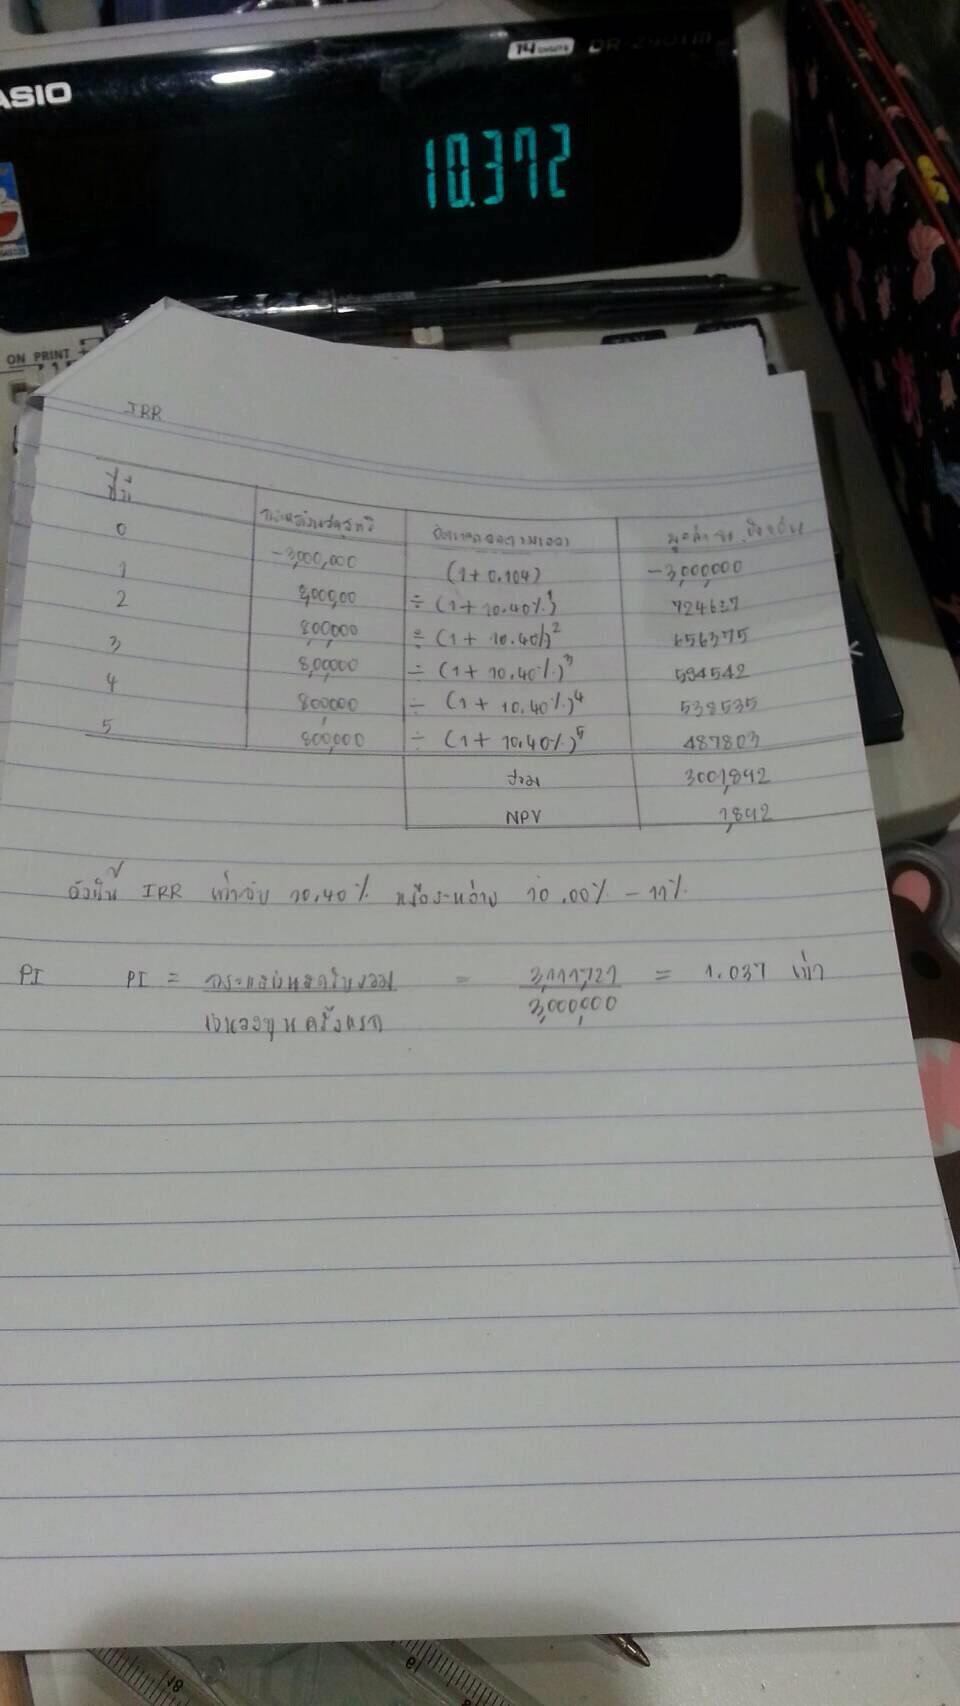 CASIO
14 DIGITS DR-240TM
10.372
ON PRINT
IRR
ปีที่ กระแสเงินสดสุทธิ มูลค่า ปัจจุบัน
0 -3,000,000 (1+0.104) -3,000,000
1 800,000 ÷ (1+10.40%)¹ 724637
2 800,000 ÷ (1+10.40%)² 656375
3 8,00000 ÷ (1+10.40%)³ 594542
4 800000 ÷ (1+10.40%)⁴ 538535
5 800,000 ÷ (1+10.40%)⁵ 487803
รวม 3001,892
NPV 1,892
ดังนั้น IRR เท่ากับ 10.40% หรือระหว่าง 10.00% - 11%
PI PI = กระแสเงินสดรับรวม = 3,111,721 = 1.037 เท่า
เงินลงทุนครั้งแรก 3,000,000